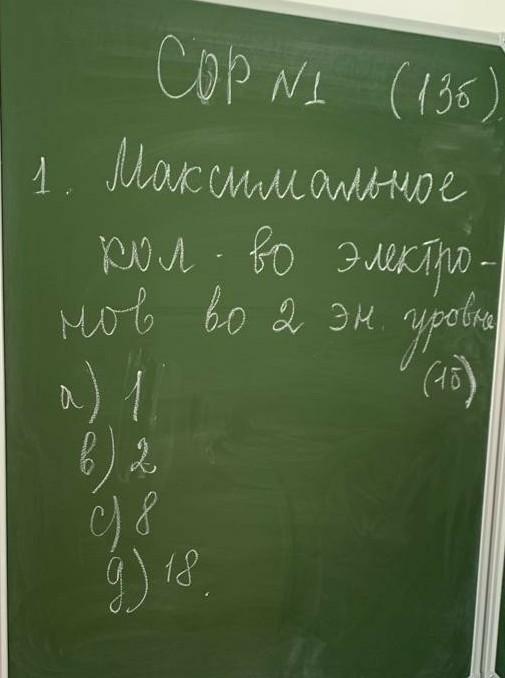 СОР №1 (13б).
1. Максимальное
кол-во электро-
нов во 2 эн. уровне
(1б)
а) 1
в) 2
с) 8
д) 18.